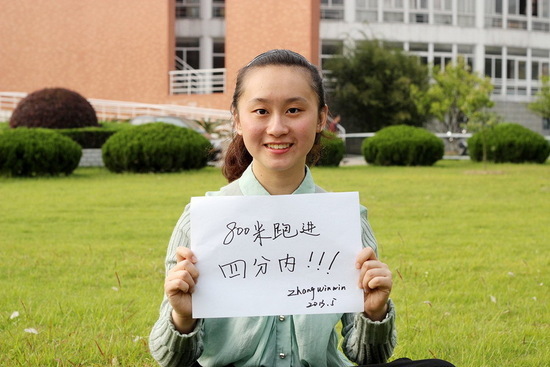 800米跑进
四分内!!!
zhongwinwin
2013.5